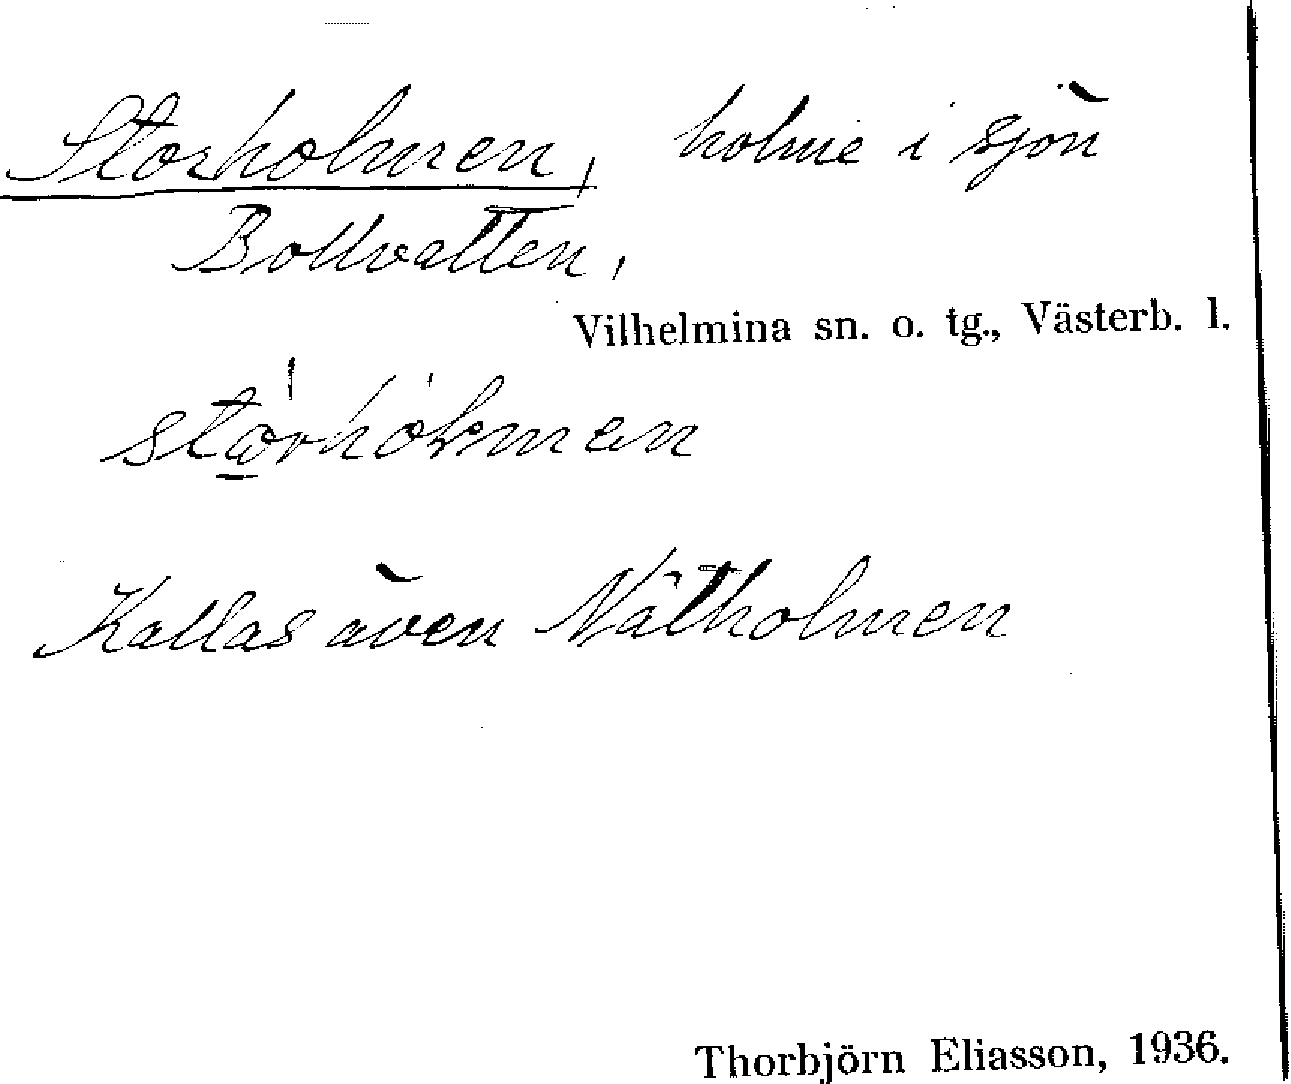 Storholmen, holme i sjön
Bollvatten,
Vilhelmina sn. o. tg., Västerb. l.
Kallas även Nätholmen
Thorbjörn Eliasson, 1936.